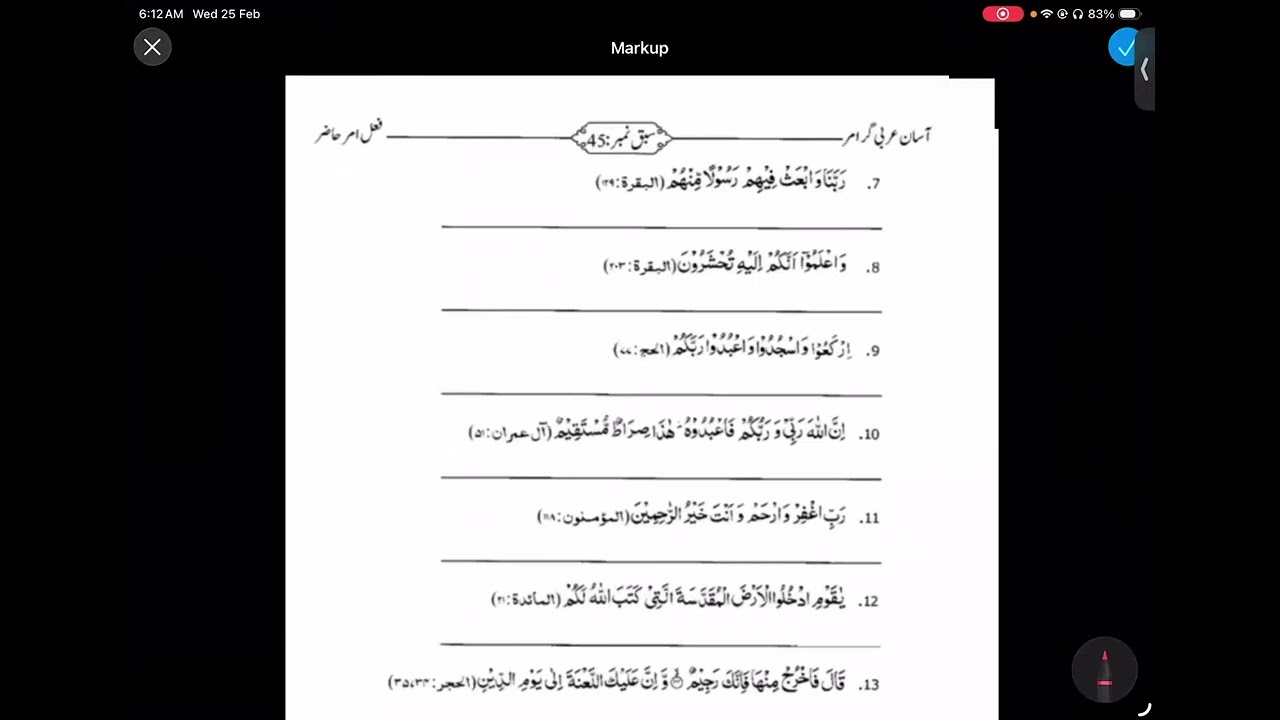 6:12 AM Wed 25 Feb 83%
Markup
آسان عربی گرامر سبق نمبر:45 فعل امر حاضر
7. رَبَّنَا وَابْعَثْ فِيْهِمْ رَسُوْلًا مِّنْهُمْ (البقرة:۱۲۹)
8. وَاعْلَمُوْٓا اَنَّكُمْ اِلَيْهِ تُحْشَرُوْنَ (البقرة:۲۰۳)
9. اِرْكَعُوْا وَاسْجُدُوْا وَاعْبُدُوْا رَبَّكُمْ (الحج:۷۷)
10. اِنَّ اللّٰهَ رَبِّيْ وَ رَبُّكُمْ فَاعْبُدُوْهُ ؕ هٰذَا صِرَاطٌ مُّسْتَقِيْمٌ (آل عمران:۵۱)
11. رَبِّ اغْفِرْ وَارْحَمْ وَاَنْتَ خَيْرُ الرّٰحِمِيْنَ (المؤمنون:۱۱۸)
12. يٰقَوْمِ ادْخُلُوا الْاَرْضَ الْمُقَدَّسَةَ الَّتِيْ كَتَبَ اللّٰهُ لَكُمْ (المائدة:۲۱)
13. قَالَ فَاخْرُجْ مِنْهَا فَاِنَّكَ رَجِيْمٌ ۝ وَّاِنَّ عَلَيْكَ اللَّعْنَةَ اِلٰى يَوْمِ الدِّيْنِ (الحجر:۳۵،۳۴)